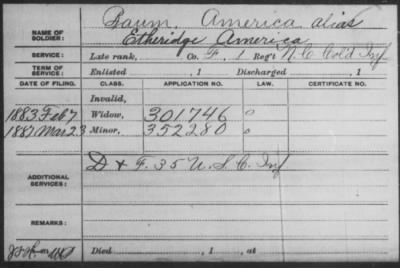 Baum, America alias
NAME OF SOLDIER: Etheridge America
SERVICE: Late rank, Co. F, 1 Reg't N.C. Col'd Inf
TERM OF SERVICE: Enlisted , 1 Discharged , 1
DATE OF FILING. CLASS. APPLICATION NO. LAW. CERTIFICATE NO.
Invalid,
1883 Feb 7 Widow, 301746 o
1887 Mar 23 Minor, 352280 o
D & F. 35 U.S.C. Inf
ADDITIONAL SERVICES:
REMARKS:
Died , 1 , at